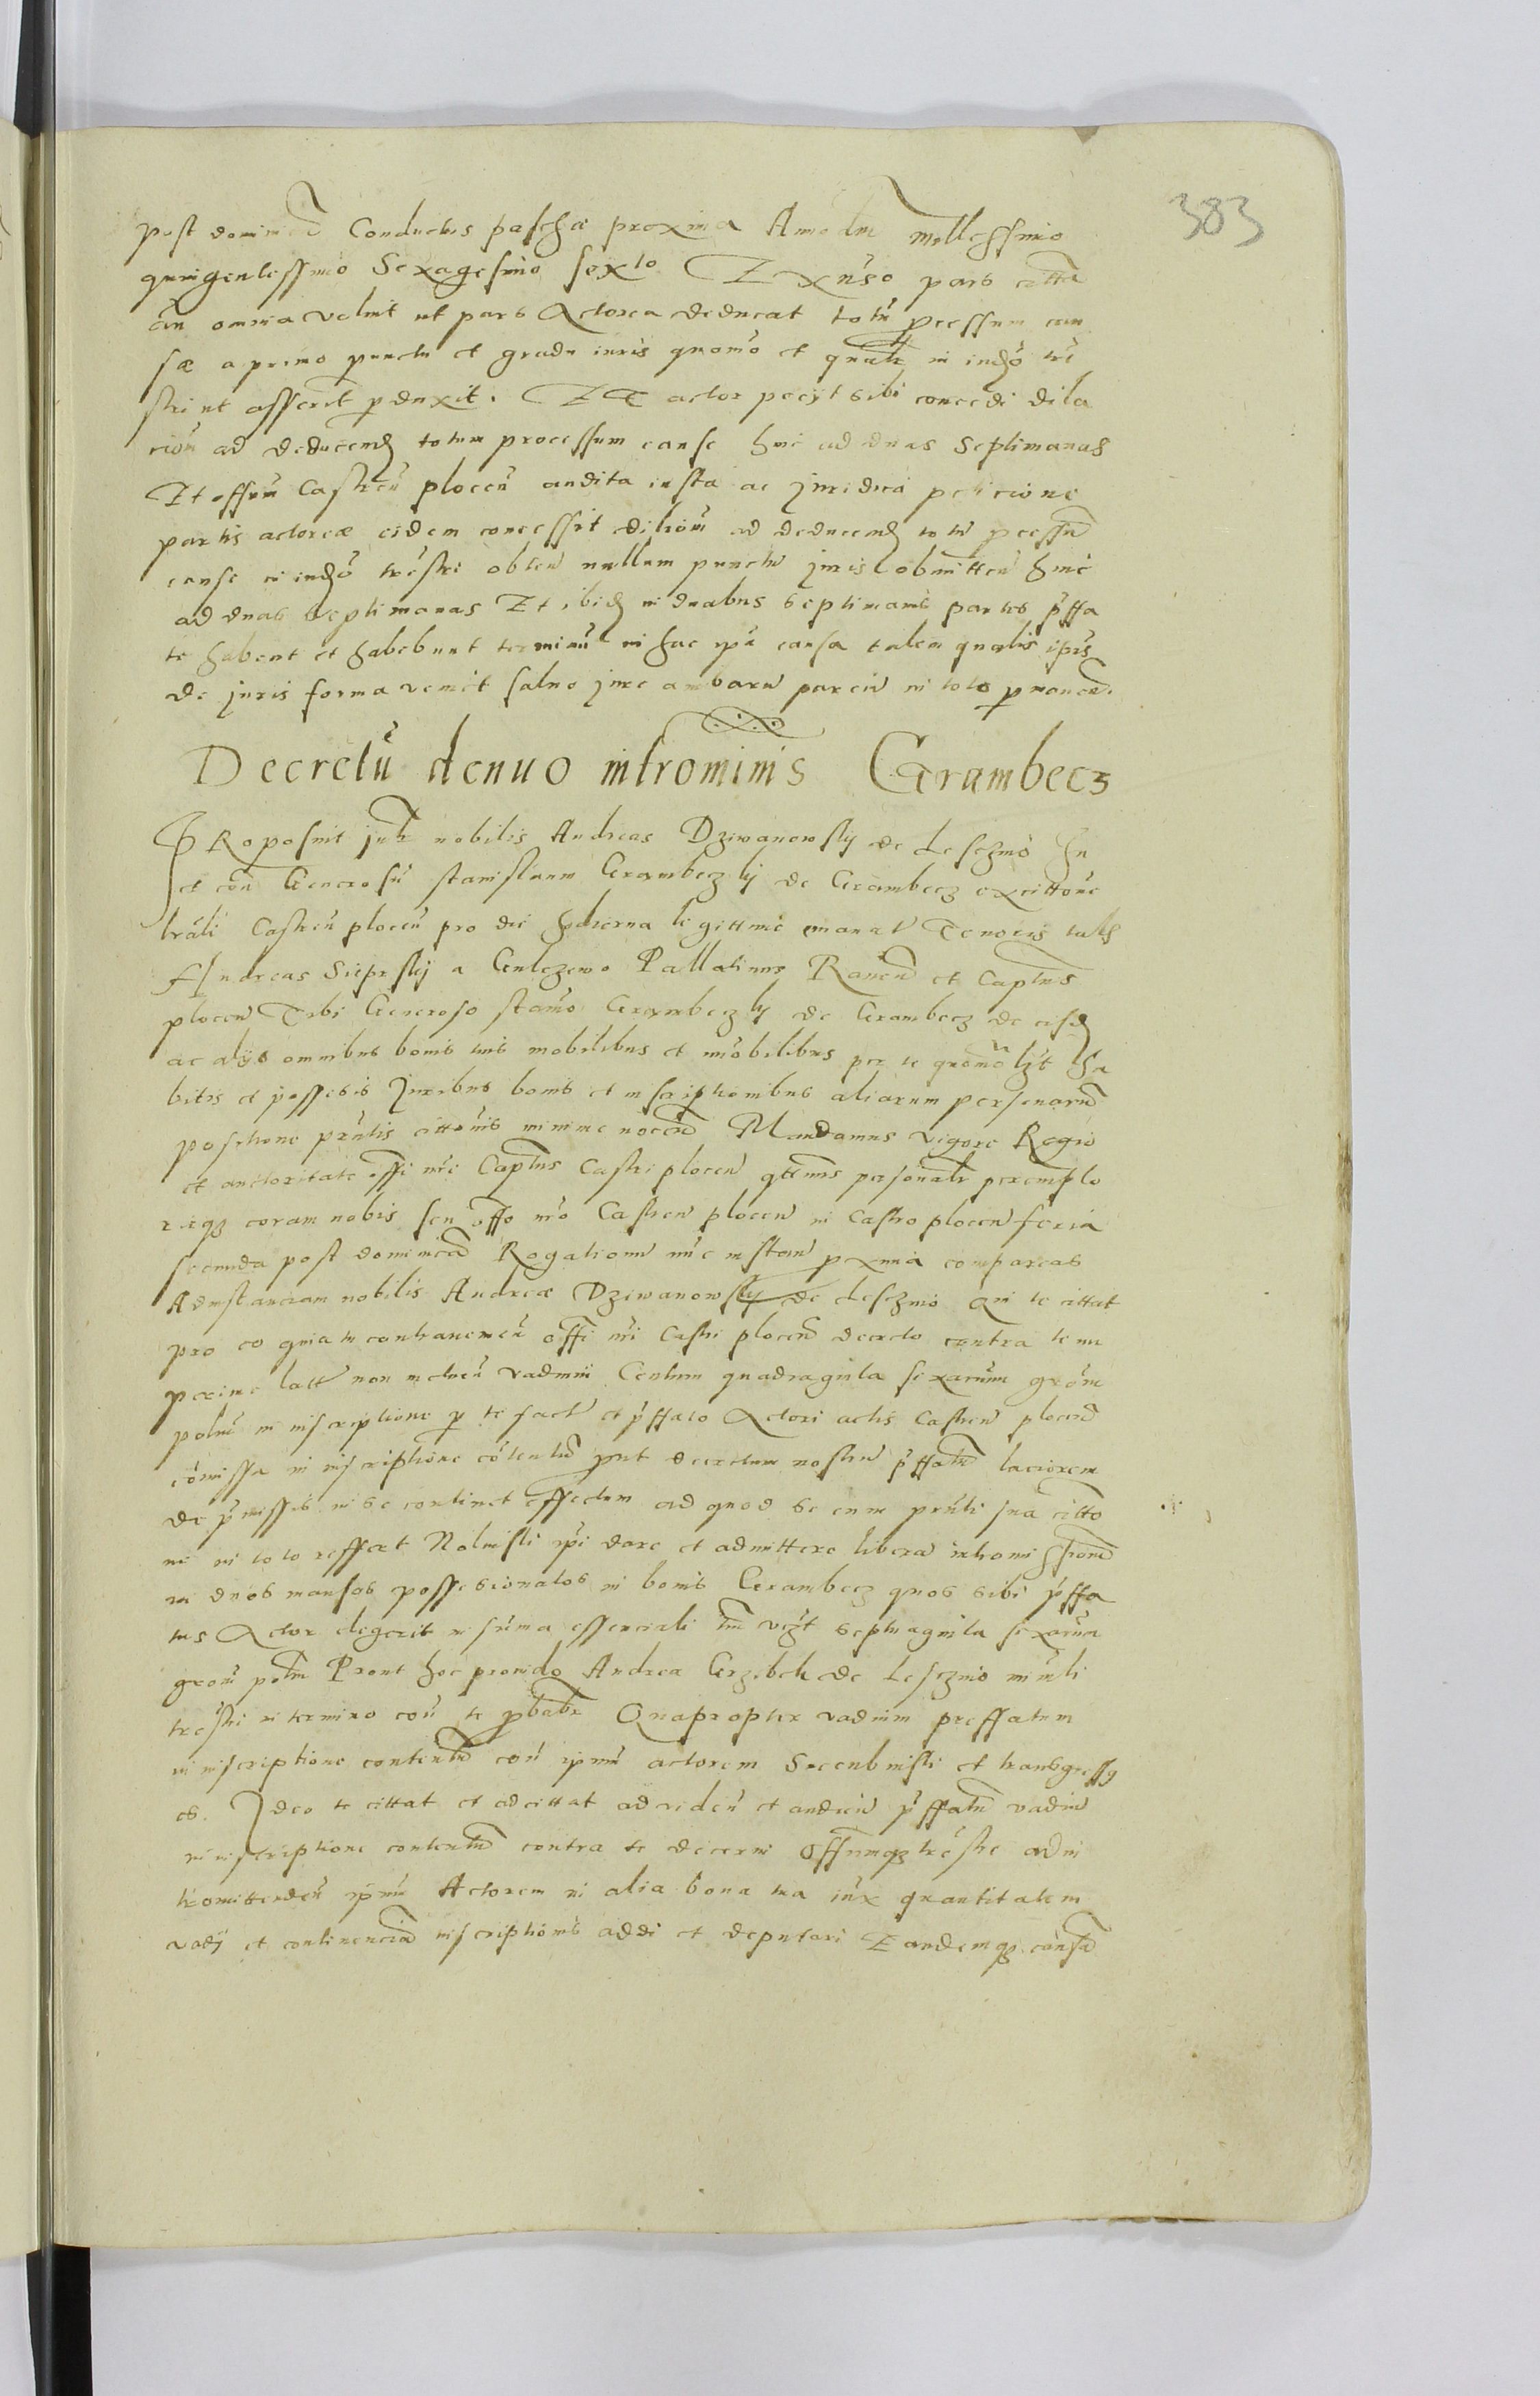 383
post dominicā Conductus paschæ proxima Anno dni millessimo
quingentessimo Sexagesimo sexto Ex adūso pars citta
an omnia voluit ut pars Actorea deducat totū pcessum cau
sæ a primo punctu et gradu iuris quomō et qualr in iudō trē
stri ut asserit pduxit. Et actor peciÿt sibi concedi dila
cionū ad deducend totum processum cause hinc ad duas septimanas
Et offium Castren plocen audita iusta ac juridica peticione
partis actoreæ eidem concessit dilciom ad deducend totū pcessū
cause in iudō trestri obten nullum punctū juris obmitten hinc
ad duas septimanas Et ibid in duabus septimanis partes pffa
te habent et habebunt terminū in hac ipa causa talem qualis ipis
de juris forma venit saluo jure ambarū parciū in toto pmanen.
Decretū denuo introminis Grambecz
PRoposuit judr nobilis Andreas Dziwanowsky de Lesczno In
et con Generosū stanislaum Grambeczky de Grambecz ex cittone
lrali Castren plocen pro die hodierna legittime emanat Tenoris talis
Andreas Sieprsky a Gulczewo Pallatinus Rauen et Captnus
plocen Tibi Generoso stano Grambeczky de Grambecz de eisd
ac alÿs omnibus bonis tuis mobilibus et imobilibus per te quomolzt ha
bitis et possesis Juribus bonis et inscriptionibus aliarum personarū
positione pntis cittonis minime nocen Mandamus vigore Regio
et auctoritate offi nri Captnus Castri plocen qttenus personalr peremptō
rieq coram nobis seu offo nro Castren plocen in Castro plocen feria
secunda post dominicā Rogationū nunc instan pxima compareas
Ad instanciam nobilis Andreæ Dziwanowsky de Lesczno Qui te cittat
pro eo quia tu contrauenien offi nri Castri plocen decreto contra te nu
perime latt non metuen vadium Centum quadraginta sexarum grōm
polm in inscriptione p te fact et pffato Actori actis Castren plocen
comissa in inscriptione cotentū put decretum nostrū pffatū laciorem
de pmissis in se continet effectum ad quod se cum pnti sua citto
ne in toto reffert Noluisti ipi dare et admittere libera intromissionē
in duos mansos possesionatos in bonis Grambecz quos sibi pffa
tus Actor elegerit in suma essenciali tm vizt septuaginta sexarum
grom polm Prout hoc prouido Andrea Grzibek de Lesczno mnli
trestri in termino con te pbabr Quapropter vadium preffatum
in inscriptione contentū con ipum actorem Succubuisti et transgressq
es. Ideo te cittat et adcittat ad viden et audien pffatū vadiū
in inscriptione contentū contra te decerni Offiumq trestre ad in
tromitten dū ipum Actorem in alia bona tua iux quantitatem
vadÿ et continenciā inscriptionis addi et deputari Eandemq causā